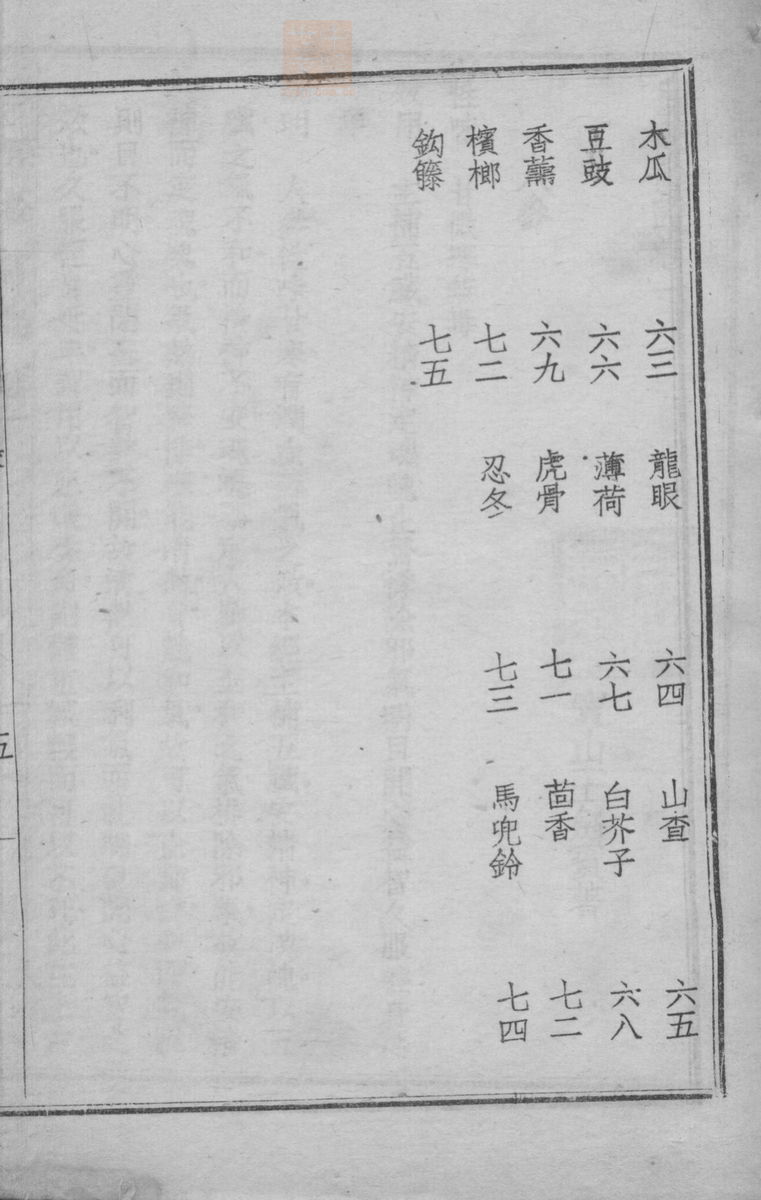 木瓜 六三 龍眼 六四 山查 六五
豆豉 六六 薄荷 六七 白芥子 六八
香薷 六九 虎骨 七一 茴香 七二
檳榔 七二 忍冬 七三 馬兜鈴 七四
鈎籐 七五
五